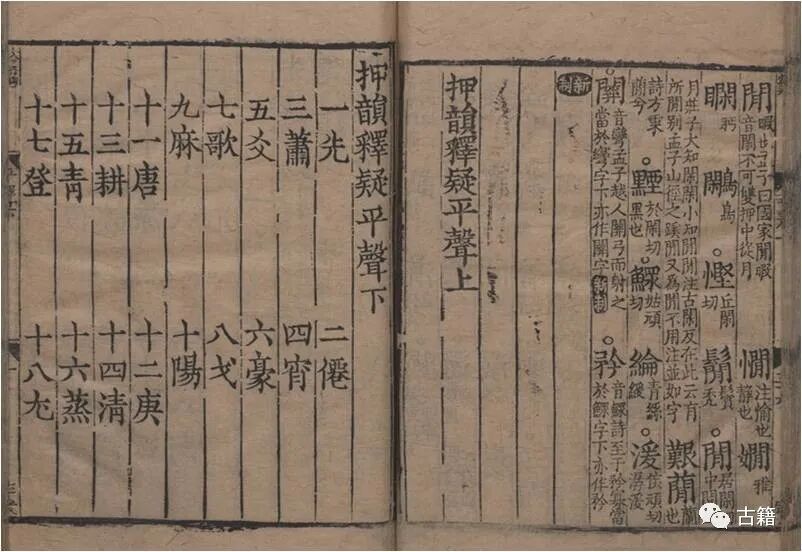 閒暇也孟子曰國家閒暇音閑不可雙押中從月 憪注愉也靜也 嫺雅
瞯眄 鷳鳥 ○慳丘閑切 鬜鬢禿 ○閒居閑切中閒
月莊子大知閑閑小知閒閒注古閑反在此云有所閒別孟子山徑之蹊閒又為閒不用注並如字 艱 蕑也
詩方秉蕑今 ○黫於閑切黑也 ○鰥姑頑切 綸青絲綬 ○湲頑切潺湲
關音彎孟子越人關弓而射之當於彎字下亦作關字新制 ○矜音鰥詩至于矜寡當於鰥字下亦作矜
新制
押韻釋疑平聲上
押韻釋疑平聲下
一先 二僊
三蕭 四宵
五爻 六豪
七歌 八戈
九麻 十陽
十一唐 十二庚
十三耕 十四清
十五青 十六蒸
十七登 十八尤
古籍